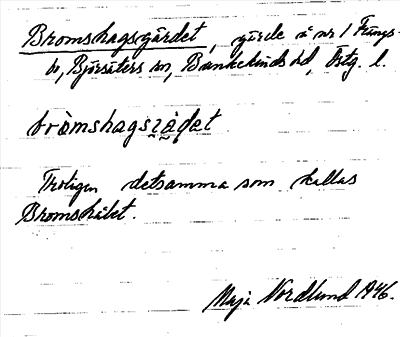 Bromshagsgärdet, gärde å nr 1 Frängs-
bo, Björsäters sn, Bankekinds hd, Östg. l.
bròmshagsɾä̀ɖet
Troligen detsamma som kallas
Bromshålet.
Maja Nordlund 1946.